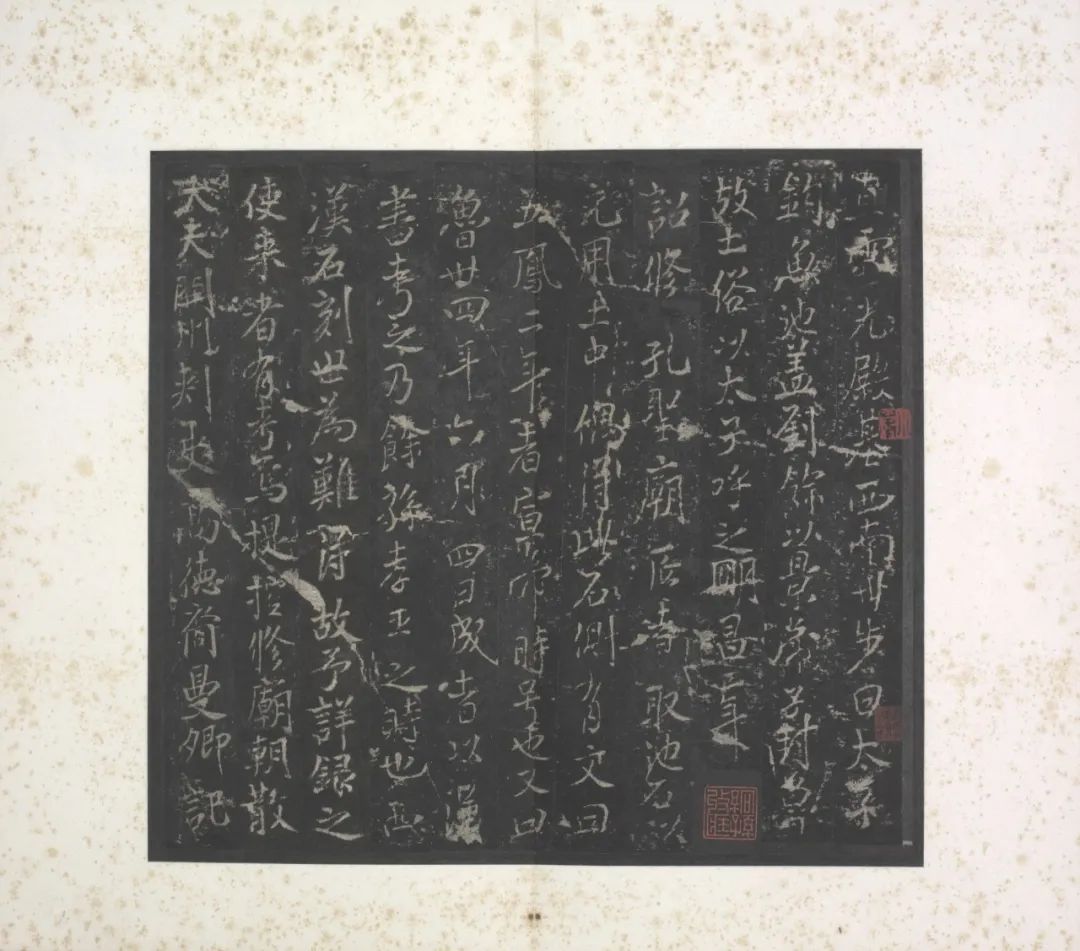 直灵光殿基西南卅步曰太子
釣魚池盖劉餘以景帝子封魯
故土俗以太子呼之明昌二年
詔修孔聖廟匠者取池石以
充用土中偶得此石側有文曰
五鳳二年者宣帝時号也又曰
魯卅四年六月四日成者以漢
書考之乃餘孫孝王之時也西
漢石刻世為難得故予詳録之
使来者有考焉提控修廟朝散
大夫開州刺史高德裔曼卿記